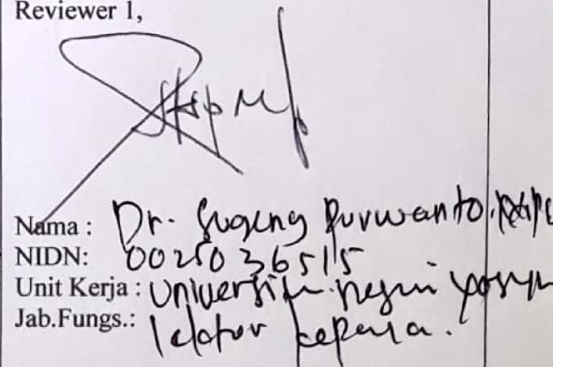 Reviewer 1,
Nama : Dr. Sugeng Purwanto.
NIDN: 0025036515
Unit Kerja : Universitas negeri
Jab.Fungs.: lektor kepala.